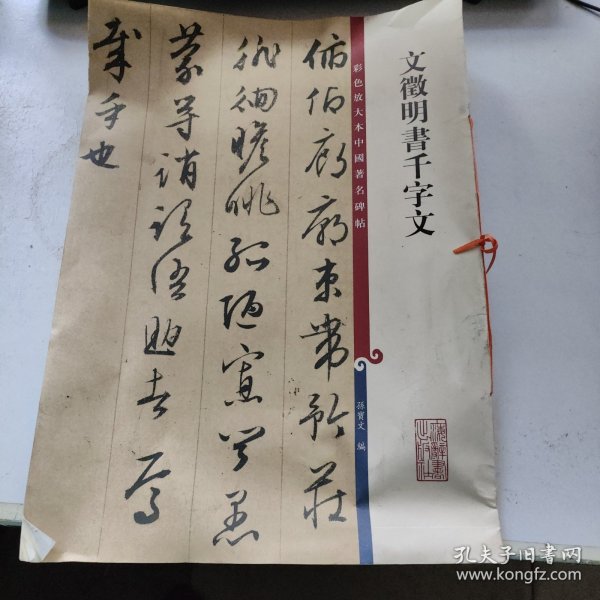 文徵明書千字文
彩色放大本中國著名碑帖
孫寶文 編
上海辭書出版社
俯仰廊廟束帶矜莊
徘徊瞻眺孤陋寡聞愚
蒙等誚謂語助者焉
哉乎也
孔夫子旧书网
www.kongfz.com